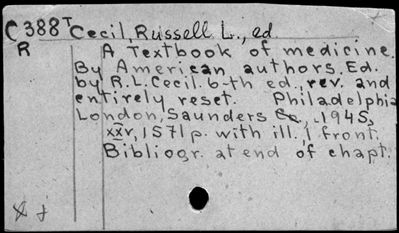 C388T Cecil, Russell L., ed.
R A Textbook of medicine.
By American authors. Ed.
by R.L.Cecil. 6-th ed., rev. and
entirely reset. Philadelphia
London, Saunders Co., 1945,
xxv, 1571 p. with ill., 1 front.
Bibliogr. at end of chapt.